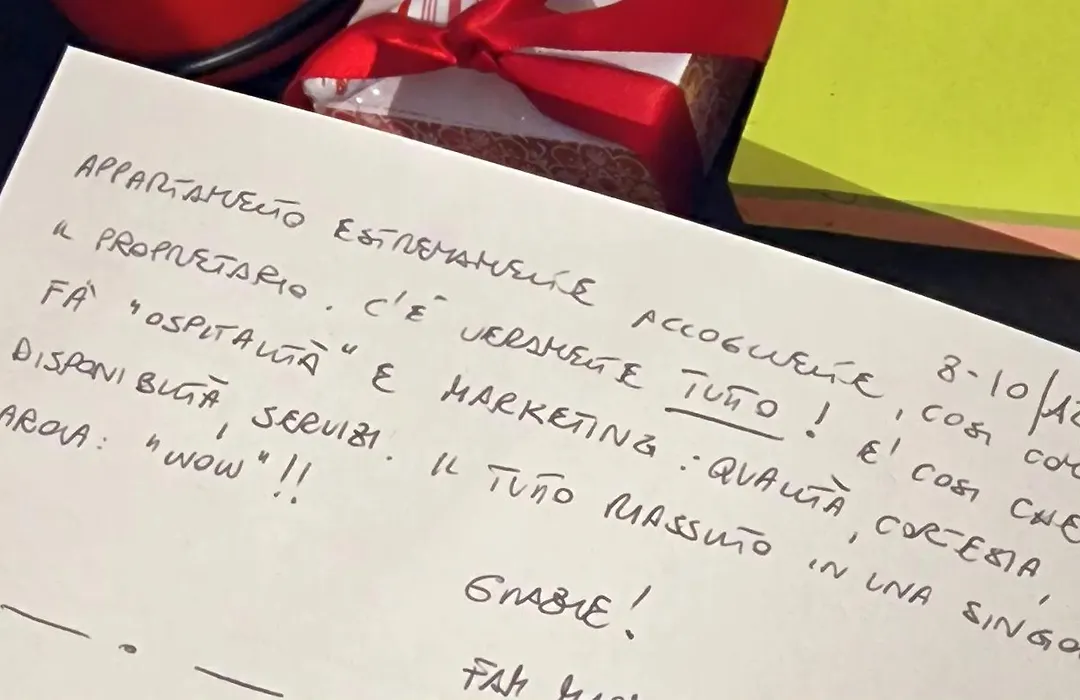 8-10/12
APPARTAMENTO ESTREMAMENTE ACCOGLIENTE, COSI COM
IL PROPRIETARIO. C'È VERAMENTE TUTTO! E' COSI CHE
FÀ "OSPITALITÀ" E MARKETING: QUALITÀ, CORTESIA,
DISPONIBILITÀ, SERVIZI. IL TUTTO RIASSUNTO IN UNA SINGO
AROLA: "WOW"!!
GRAZIE!
FAM